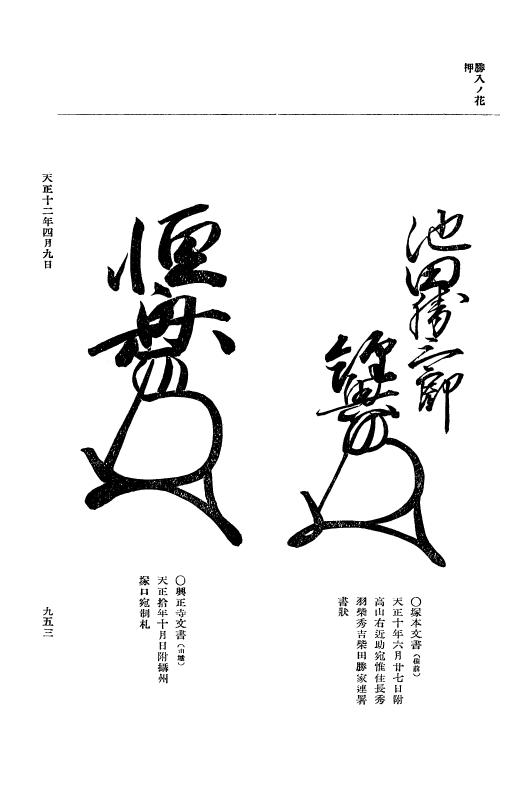 勝入ノ花
押
池田勝三郎
恒興
○塚本文書
天正十年六月廿七日附
高山右近助宛惟住長秀
羽柴秀吉柴田勝家連署
書狀
恒興
○興正寺文書
天正拾年十月日附攝州
塚口宛制札
天正十二年四月九日
九五三